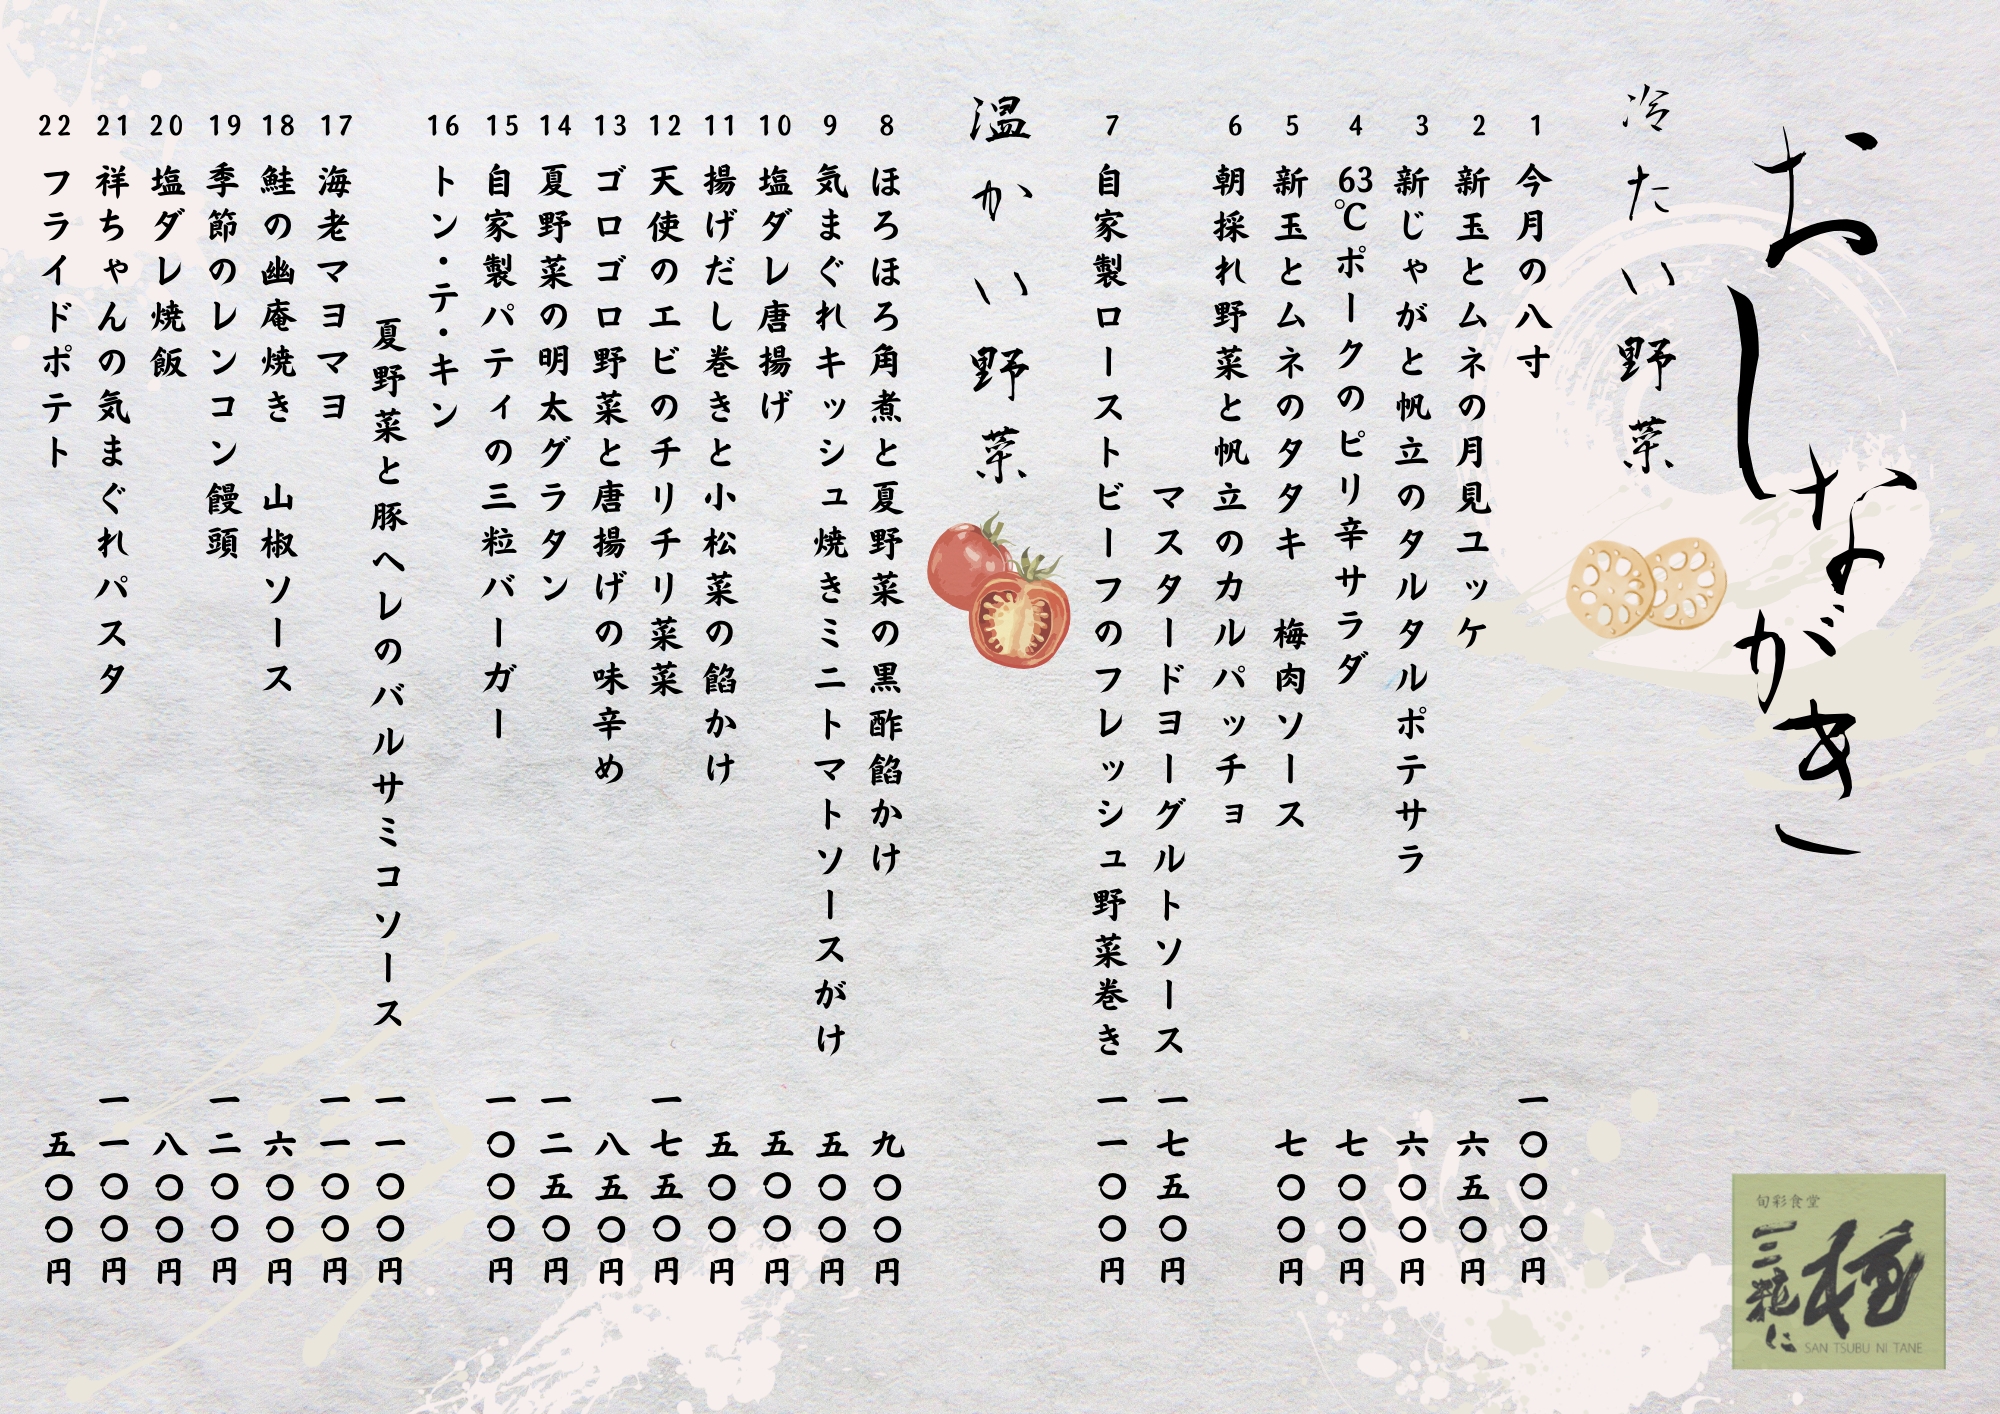 おしながき
冷たい野菜
1 今月の八寸 一〇〇〇円
2 新玉とムネの月見ユッケ 六五〇円
3 新じゃがと帆立のタルタルポテサラ 六〇〇円
4 63℃ポークのピリ辛サラダ 七〇〇円
5 新玉とムネのタタキ 梅肉ソース 七〇〇円
6 朝採れ野菜と帆立のカルパッチョ
マスタードヨーグルトソース 一七五〇円
7 自家製ローストビーフのフレッシュ野菜巻き 一一〇〇円
温かい野菜
8 ほろほろ角煮と夏野菜の黒酢餡かけ 九〇〇円
9 気まぐれキッシュ焼きミニトマトソースがけ 五〇〇円
10 塩ダレ唐揚げ 五〇〇円
11 揚げだし巻きと小松菜の餡かけ 五〇〇円
12 天使のエビのチリチリ菜菜 一七五〇円
13 ゴロゴロ野菜と唐揚げの味辛め 八五〇円
14 夏野菜の明太グラタン 一二五〇円
15 自家製パティの三粒バーガー 一〇〇〇円
16 トン・テ・キン
夏野菜と豚ヘレのバルサミコソース 一一〇〇円
17 海老マヨマヨ 一一〇〇円
18 鮭の幽庵焼き 山椒ソース 六〇〇円
19 季節のレンコン饅頭 一二〇〇円
20 塩ダレ焼飯 八〇〇円
21 祥ちゃんの気まぐれパスタ 一一〇〇円
22 フライドポテト 五〇〇円
旬彩食堂
種
三粒に
SAN TSUBU NI TANE